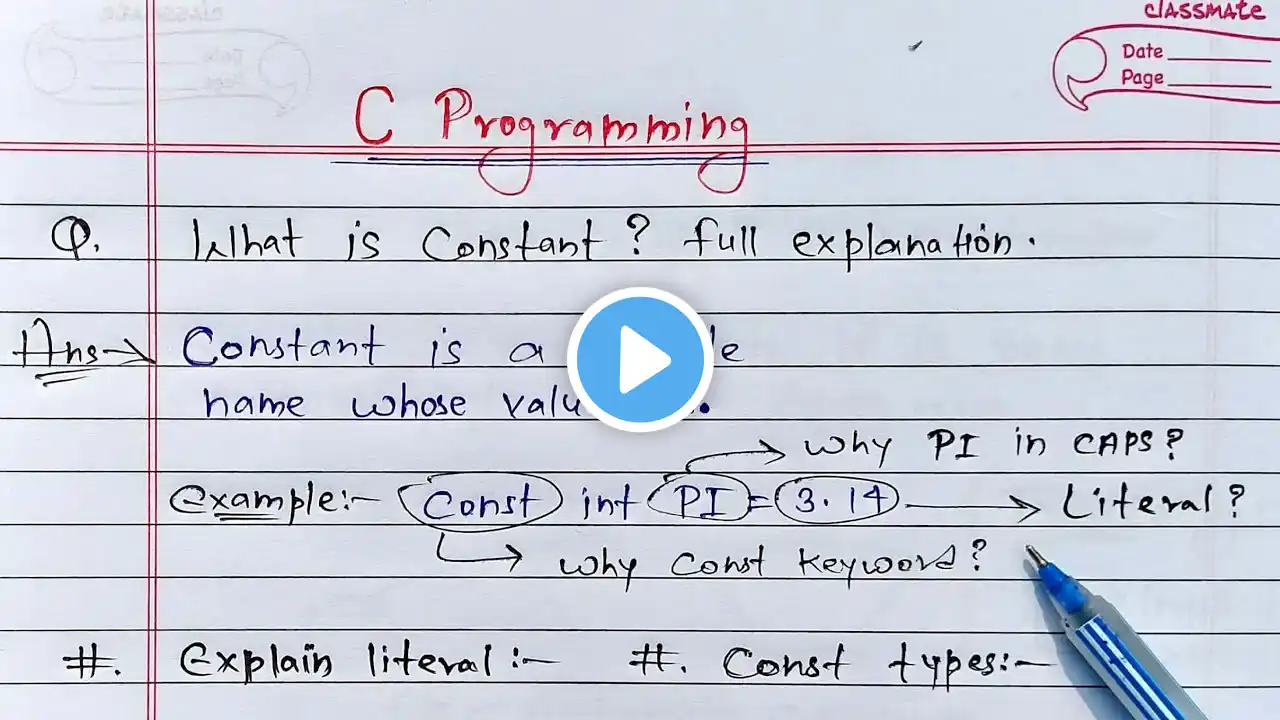 classmate
Date
Page
C Programming
Q. What is Constant? full explanation.
Ans→ Constant is a
name whose
Example:- Const int PI = 3.14 → Literal?
why PI in CAPS?
why Const keyword?
#. Explain literal:- #. Const types:-